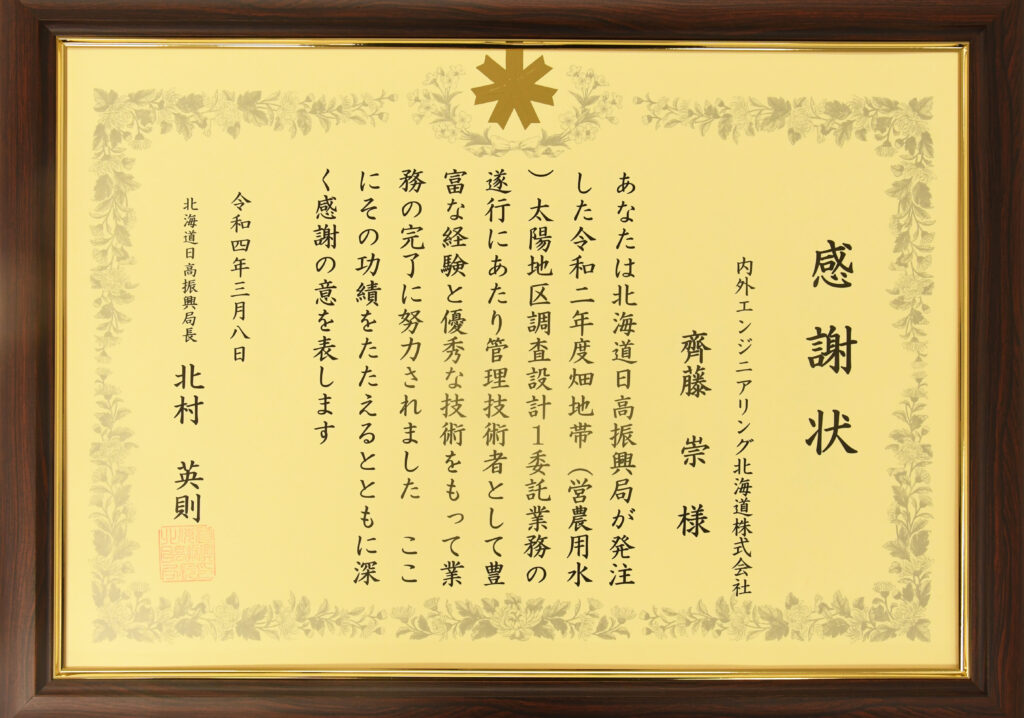 感謝状
内外エンジニアリング北海道株式会社
齊藤 崇 様
あなたは北海道日高振興局が発注
した令和二年度畑地帯（営農用水
）太陽地区調査設計１委託業務の
遂行にあたり管理技術者として豊
富な経験と優秀な技術をもって業
務の完了に努力されました ここ
にその功績をたたえるとともに深
く感謝の意を表します
令和四年三月八日
北海道日高振興局長 北村 英則